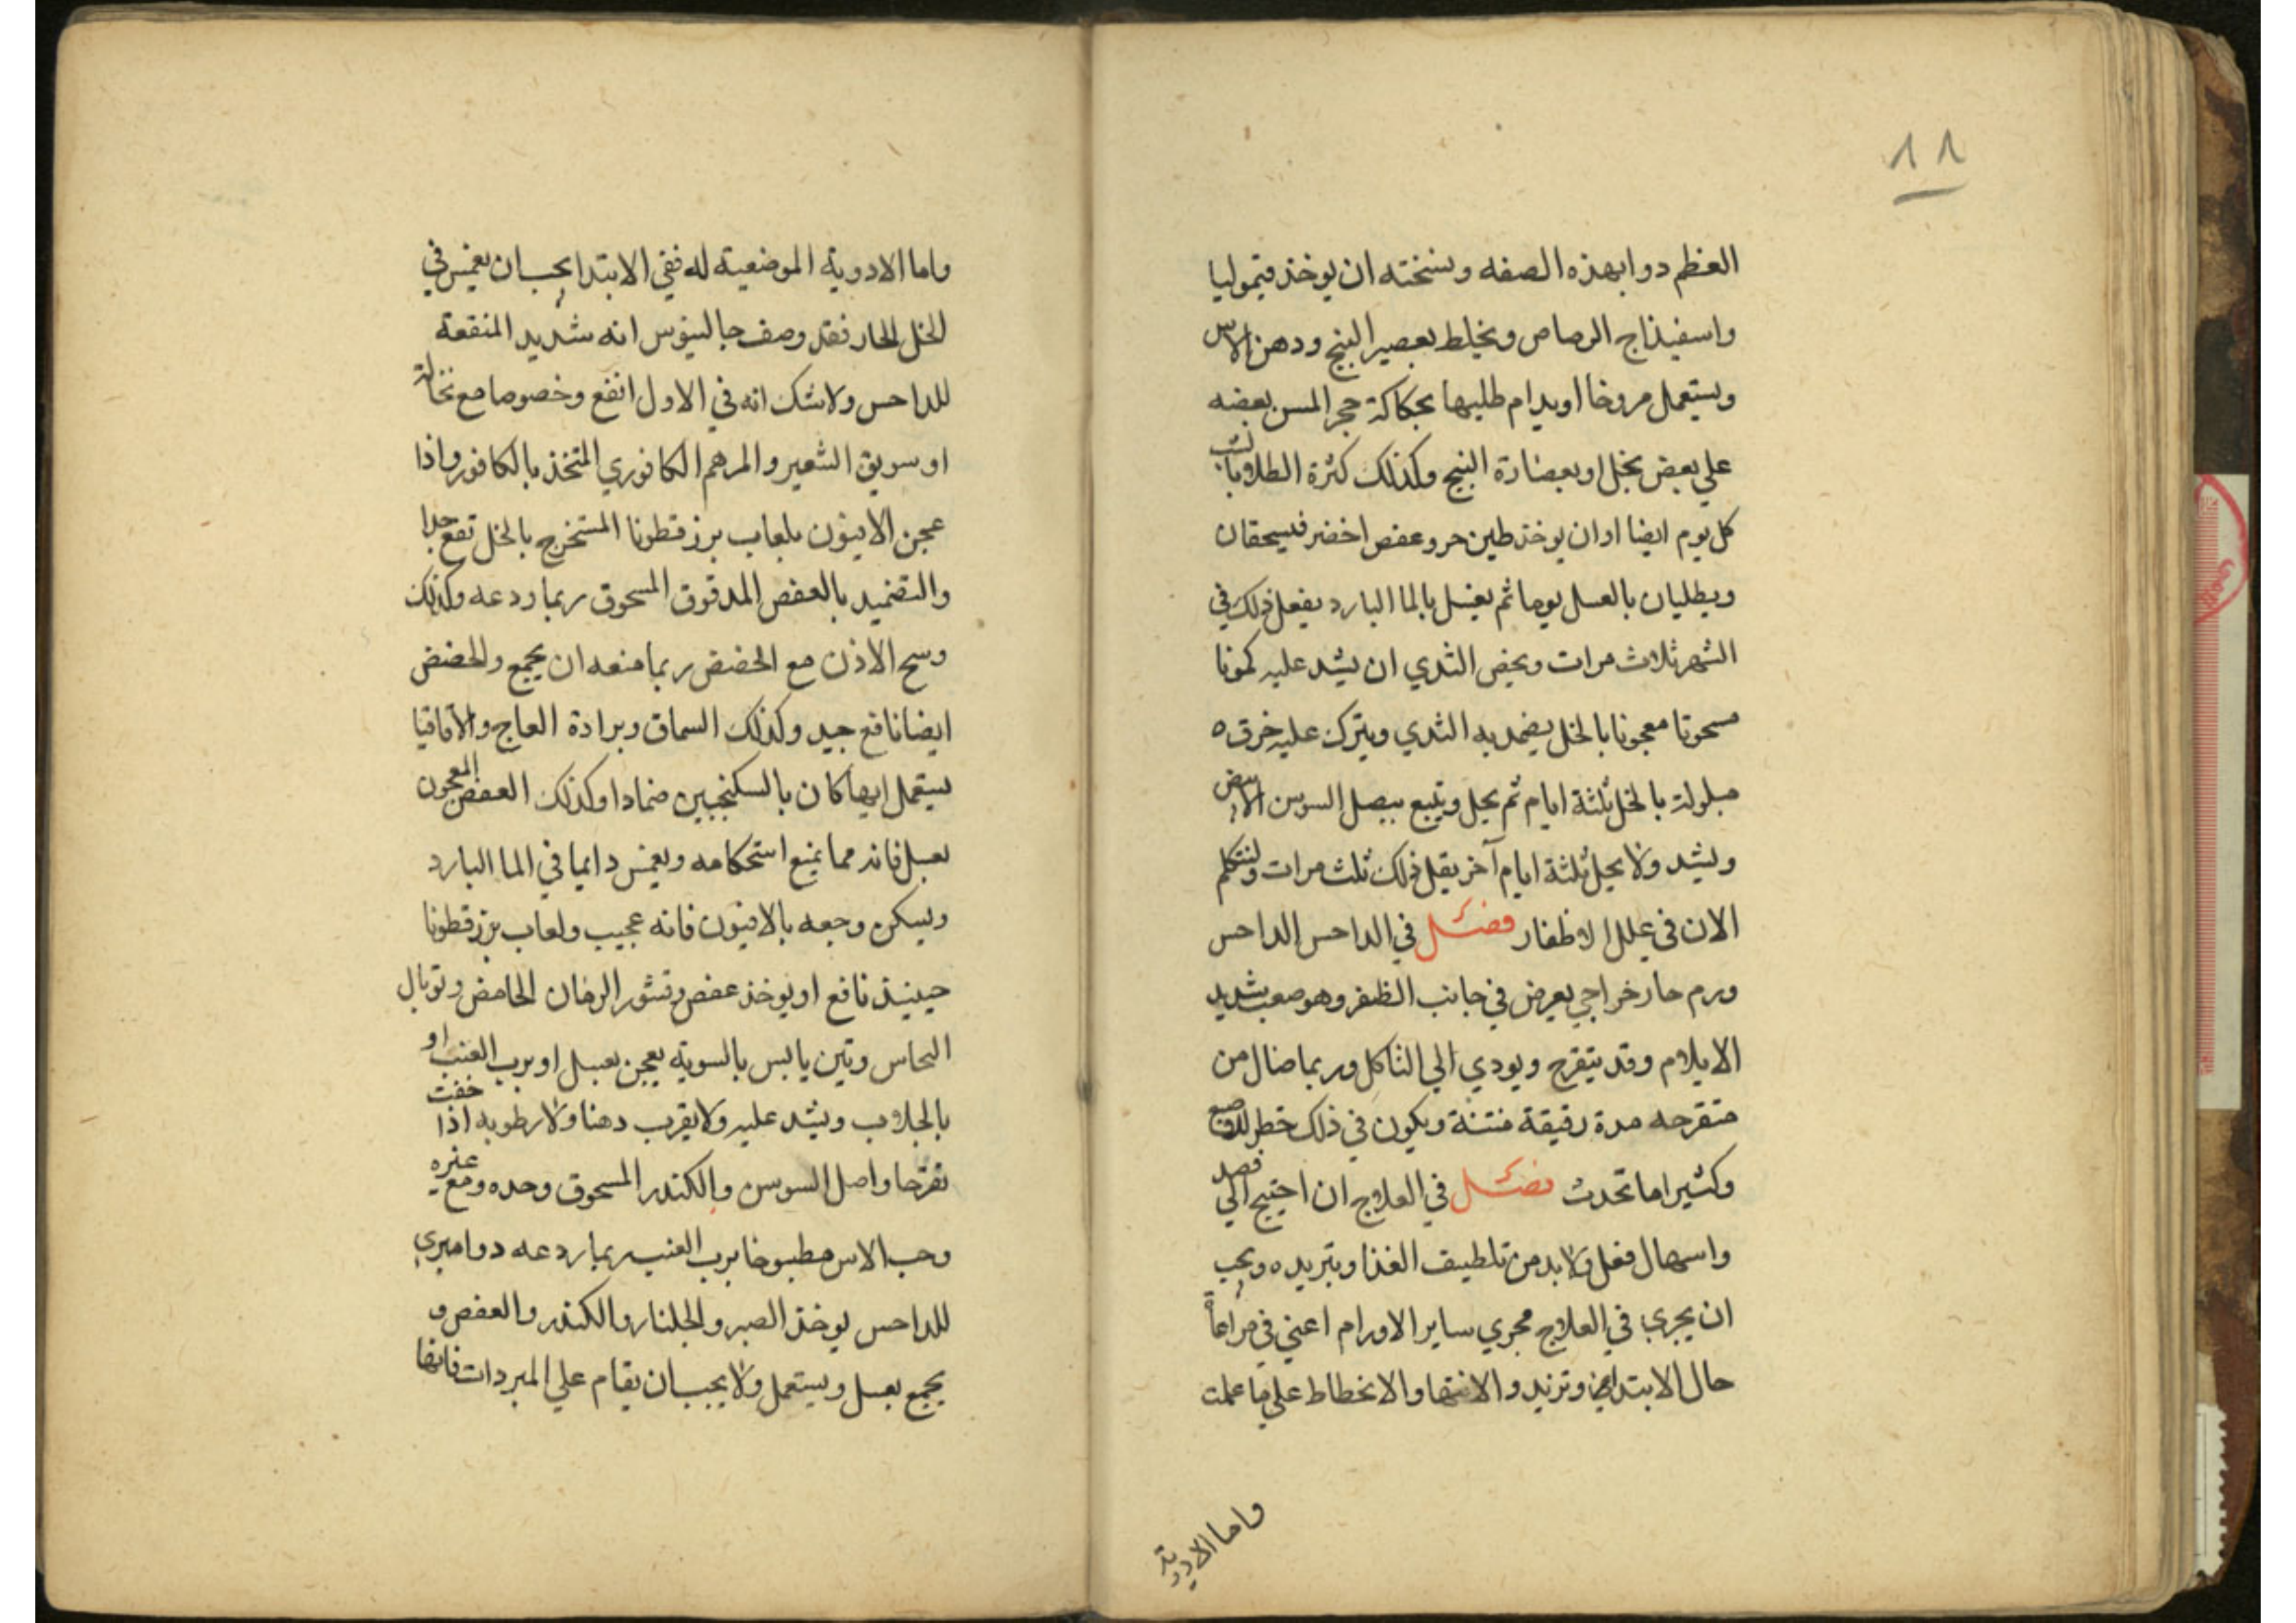 ١١
العظم دوا بهذه الصفه ونسخته ان يوخذ قيموليا
واسفيذاج الرصاص ويخلط بعصير البنج ودهن الاس
ويستعمل مروخا او يدام طليها بحكاكة حجر المسن بعضه
علي بعض بخل او بعصارة البنج وكذلك كثرة الطلا
كل يوم ايضا او ان يوخذ طين حر وعفص اخضر فيسحقان
ويطليان بالعسل يوما ثم يغسل بالما البارد يفعل ذلك في
الشهر ثلاث مرات ويخص الثدي ان يشد عليه كمونا
مسحوقا معجونا بالخل يضمد به الثدي ويترك عليه خرق ه
مبلولة بالخل ثلثة ايام ثم يحل ويتبع ببصل السوسن الابيض
ويشد ولا يحل ثلثة ايام آخر يفعل ذلك ثلث مرات ولنتكلم
الان في علل الاظفار فصل في الداحس الداحس
ورم حار خراجي يعرض في جانب الظفر وهو صعب شديد
الايلام وقد يتقرح ويودي الي التاكل وربما ضال من
متقرحه مدة رقيقة منتنة ويكون في ذلك خطر للاصبع
وكثيرا ما تحدث فصل في العلاج ان احتيج الي فصد
واسهال فعل ولا بد من تلطيف الغذا وتبريده ويجب
ان يجري في العلاج مجري ساير الاورام اعني في مراعاة
حال الابتدا وتزيد والانتها والانحطاط علي ما علمت
واما الادوية
واما الادوية الموضعية له ففي الابتدا يجب ان يغمس في
الخل الحار فقد وصف جالينوس انه شديد المنفعة
للداحس ولا شك انه في الاول انفع وخصوصا مع نخالة
او سويق الشعير والمرهم الكافوري المتخذ بالكافور واذا
عجن الافيون بلعاب بزر قطونا المستخرج بالخل نفع جدا
والتضميد بالعفص المدقوق المسحوق ربما ردعه وكذلك
وسخ الاذن مع الحضض ربما منعه ان يجمع والحضض
ايضا نافع جيد وكذلك السماق وبرادة العاج والاقاقيا
يستعمل ايها كان بالسكنجبين ضمادا وكذلك العفص المعجون
بعسل فانه مما يمنع استحكامه ويغمس دايما في الما البارد
ويسكن وجعه بالافيون فانه عجيب ولعاب بزر قطونا
حينيذ نافع او يوخذ عفص وقشور الرمان الحامض وتوبال
النحاس وتين يابس بالسويه يعجن بعسل او برب العنب او
بالجلاب ويشد عليه ولا يقرب دهنا ولا رطوبه اذا خفت
تقرحا واصل السوسن والكندر المسحوق وحده ومع غيره
وحب الاس مطبوخا برب العنب ربما ردعه دوا مبري
للداحس يوخذ الصبر والجلنار والكندر والعفص و
يجمع بعسل ويستعمل ولا يجب ان يقام علي المبردات فانها